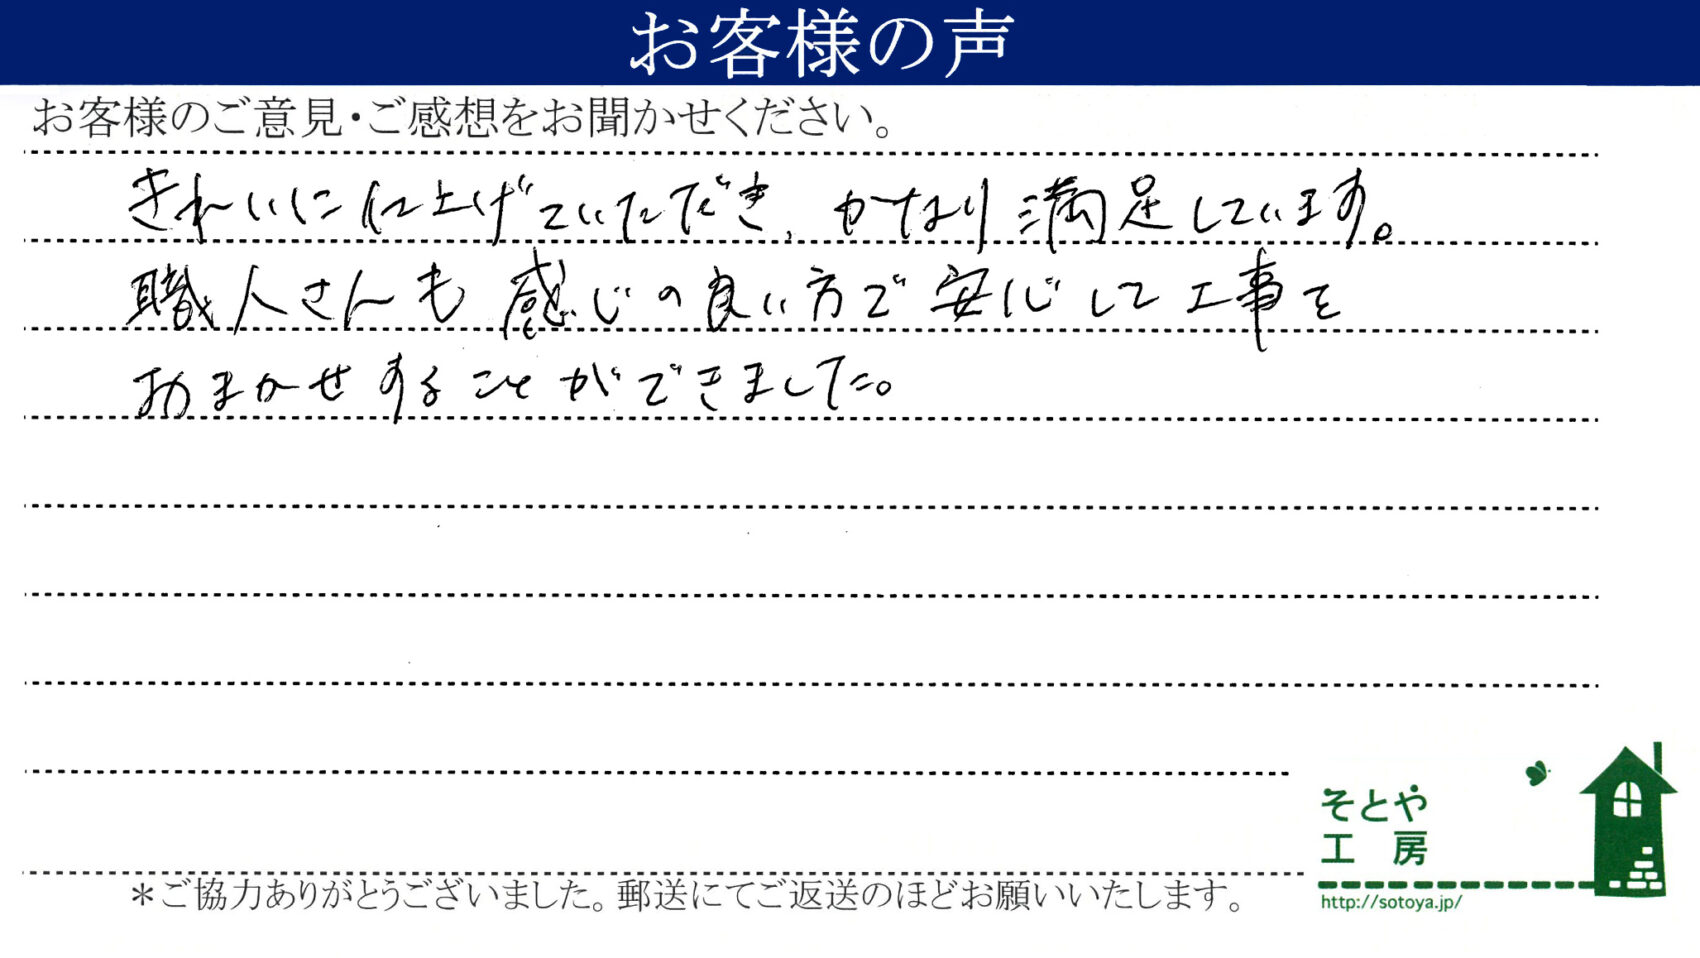 お客様の声
お客様のご意見・ご感想をお聞かせください。
きれいに仕上げていただき、かなり満足しています。
職人さんも感じの良い方で安心して工事を
おまかせすることができました。
そとや
工房
http://sotoya.jp/
＊ご協力ありがとうございました。郵送にてご返送のほどお願いいたします。